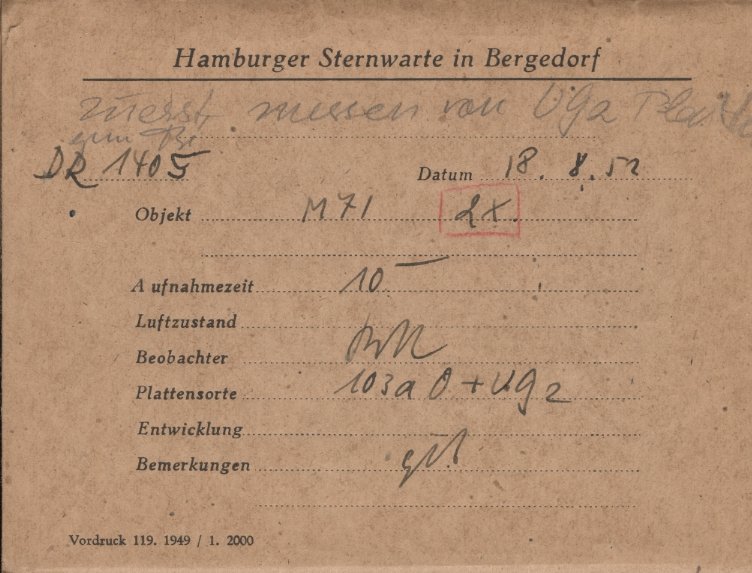 Hamburger Sternwarte in Bergedorf
zuerst messen von UG2 Platte
DR 1405 Datum 18. 8. 52
Objekt M71 2x.
Aufnahmezeit 10
Luftzustand
Beobachter
Plattensorte 103a O + UG2
Entwicklung
Bemerkungen gut
Vordruck 119. 1949 / 1. 2000